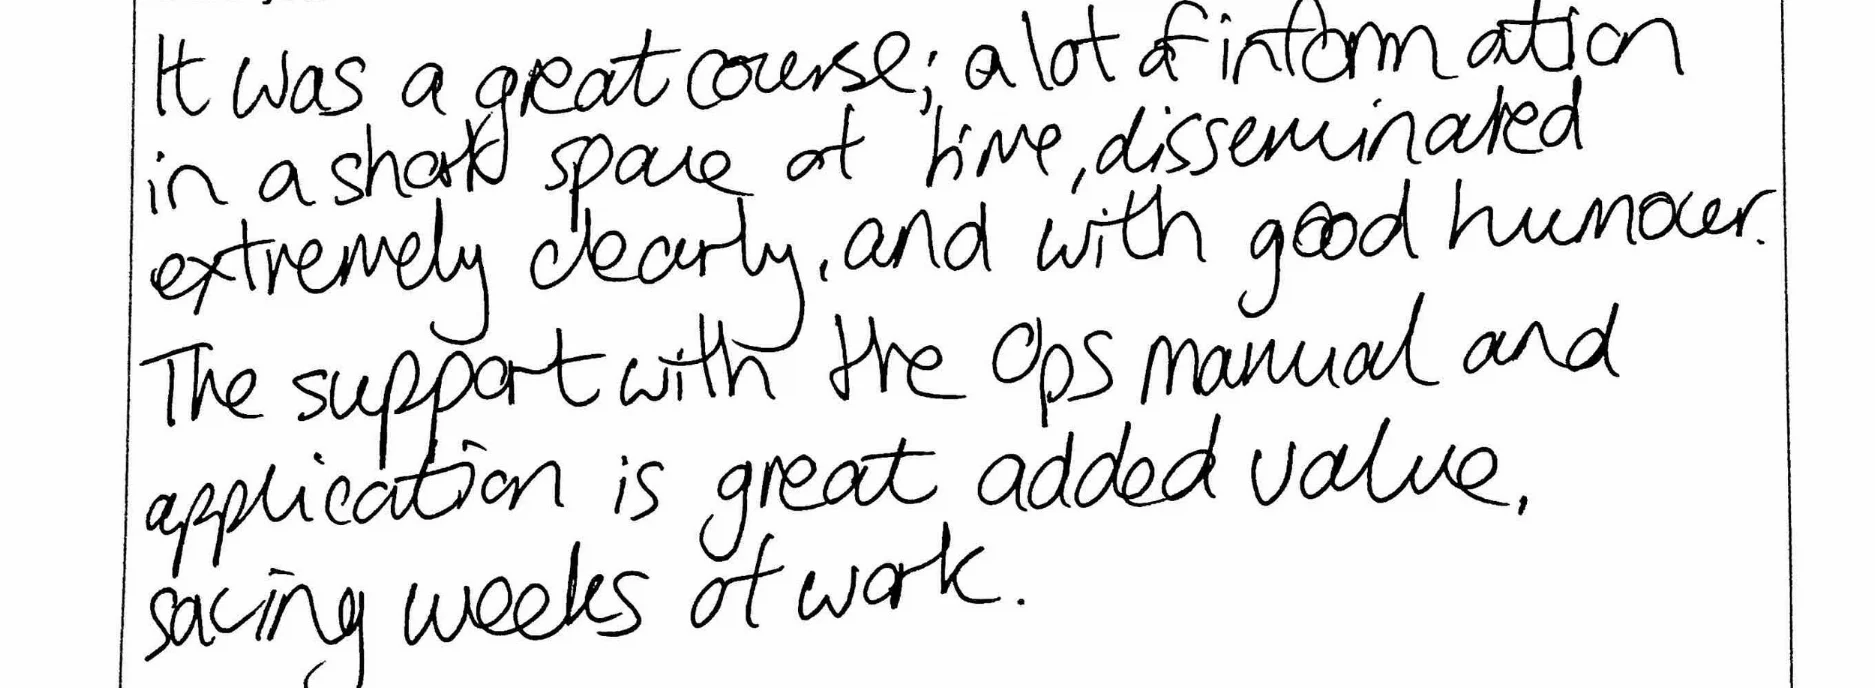 It was a great course; a lot of information
in a short space of time, disseminated
extremely clearly, and with good humour.
The support with the Ops manual and
application is great added value,
saving weeks of work.